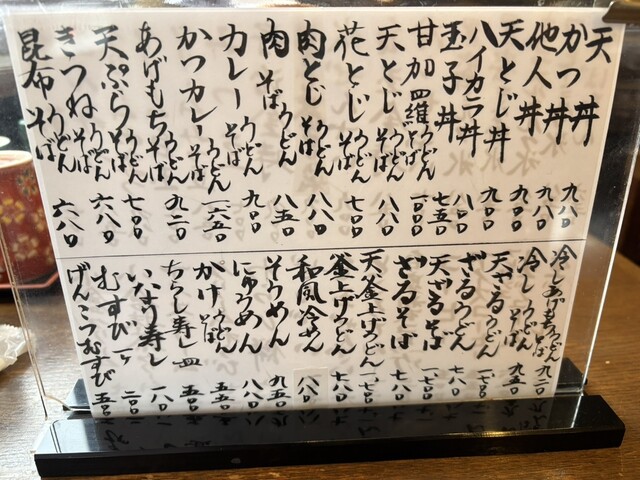 天丼 九八〇
かつ丼 九八〇
他人丼 九〇〇
天とじ丼 九〇〇
ハイカラ丼 八〇〇
玉子丼 七五〇
甘加四羅うどんそば
天とじうどんそば 八八〇
花とじうどんそば 七〇〇
肉とじうどんそば 八八〇
肉うどんそば 八五〇
カレーうどんそば 九〇〇
かつカレーうどんそば
あげもちうどんそば 九二〇
天ぷらうどんそば 七〇〇
きつねうどんそば 六八〇
昆布うどんそば 六八〇
冷しあげもちうどんそば 九二〇
冷しうどんそば 九五〇
天ざるうどん
ざるうどん 七八〇
天ざるそば
ざるそば 七八〇
天釜上げうどん
釜上げうどん
和風冷めん
そうめん 九五〇
にゅうめん 八八〇
かけうどんそば 五五〇
ちらし寿し一皿
いなり寿し 一八〇
むすび一ケ 二〇〇
げんこつむすび